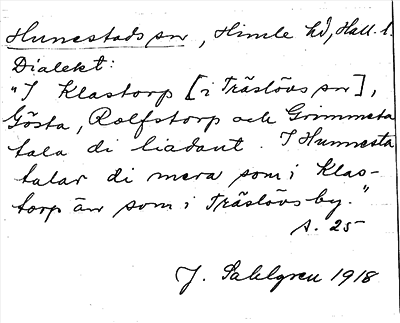 Hunnestads sn, Himle hd, Hall. l.
Dialekt:
"I Klastorp [i Träslövs sn],
Gösta, Rolfstorp och Grimmeta
tala di liadant. I Hunnesta
talar di mera som i Klas-
torp än som i Träslövs by."
s. 25
J. Sahlgren 1918